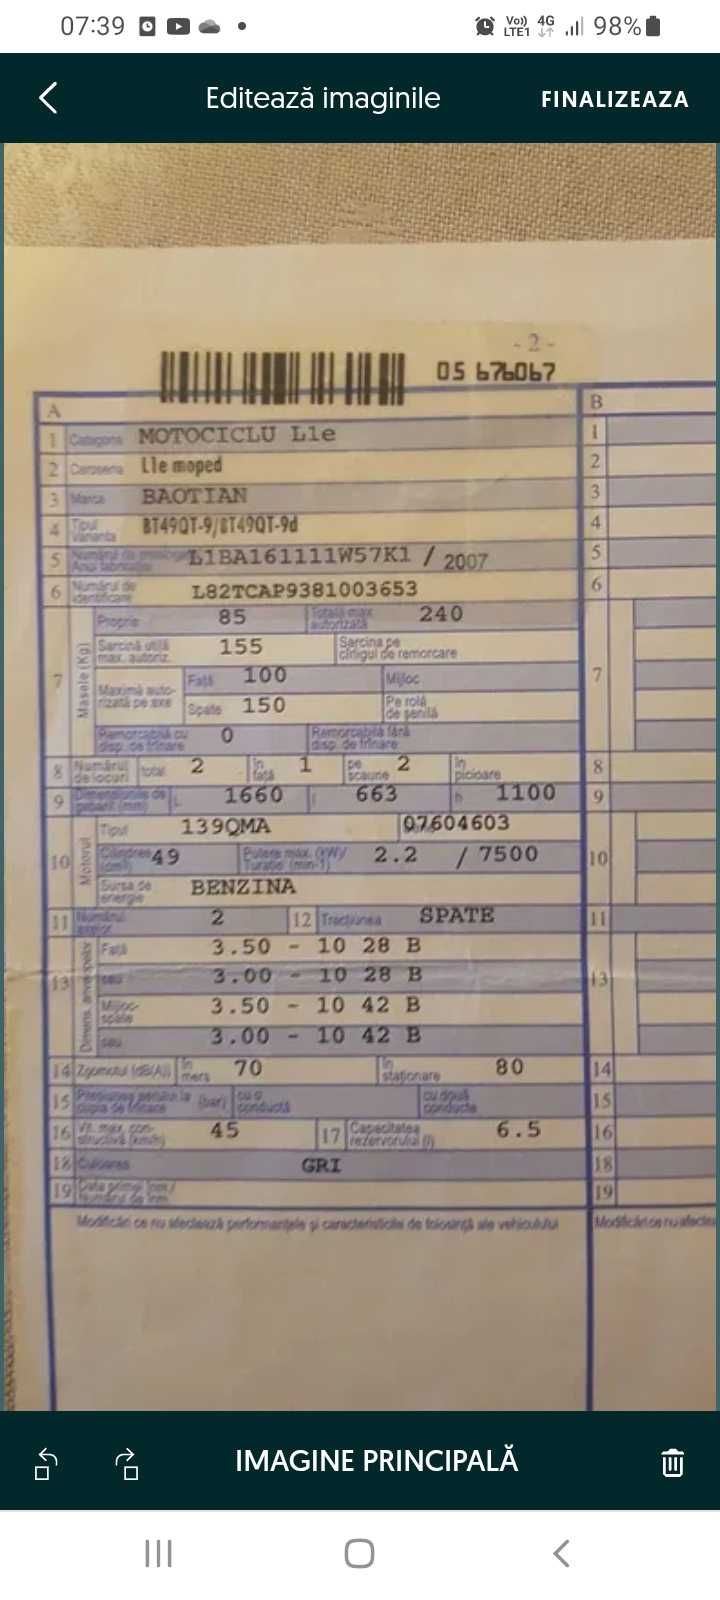 07:39 Vo)) LTE1 4G 98%
Editează imaginile FINALIZEAZA
- 2 -
05 676067
A B
1 Categoria MOTOCICLU L1e 1
2 Caroseria L1e moped 2
3 Marca BAOTIAN 3
4 Tipul Varianta BT49QT-9/BT49QT-9d 4
5 Numărul de Anul fabricației L1BA161111W57K1 / 2007 5
6 Numărul de identificare L82TCAP9381003653 6
7 Masele (Kg) Proprie 85 Totală max. autorizată 240 7
Sarcină utilă max. autoriz. 155 Sarcina pe cîrligul de remorcare
Maximă auto-rizată pe axe Față 100 Mijloc
Spate 150 Pe rolă de șenilă
Remorcabilă cu disp. de frînare 0 Remorcabilă fără disp. de frînare
8 Numărul de locuri total 2 în față 1 pe scaune 2 în picioare 8
9 Dimensiunile de gabarit (mm) L 1660 l 663 h 1100 9
10 Motorul Tipul 139QMA 07604603 10
Cilindree (cm³) 49 Putere max. (kW)/ Turație (min-1) 2.2 / 7500
Sursa de energie BENZINA
11 Numărul axelor 2 12 Tracțiunea SPATE 11
13 Dimens. anvelopelor Față 3.50 - 10 28 B 13
sau 3.00 - 10 28 B
Mijloc-spate 3.50 - 10 42 B
sau 3.00 - 10 42 B
14 Zgomotul (dB(A)) în mers 70 în staționare 80 14
15 Presiunea aerului la cupla de frînare (bar) cu o conductă cu două conducte 15
16 Vit. max. con-structivă (km/h) 45 17 Capacitatea rezervorului (l) 6.5 16
18 Culoarea GRI 18
19 Data primei înm./ Numărul de înm. 19
Modificări ce nu afectează performanțele și caracteristicile de folosință ale vehiculului Modificări ce nu afectea
IMAGINE PRINCIPALĂ